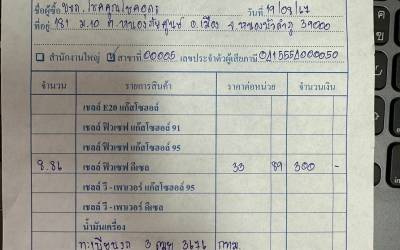 ชื่อผู้ซื้อ บจก. โชคคูณโชคอุดร วันที่ 19/08/67
ที่อยู่ 181 ม.10 ต.หนองภัยศูนย์ อ.เมือง จ.หนองบัวลำภู 39000
สำนักงานใหญ่ สาขาที่ 00005 เลขประจำตัวผู้เสียภาษี
จำนวน รายการสินค้า ราคาต่อหน่วย จำนวนเงิน
เชลล์ E20 แก๊สโซฮอล์
เชลล์ ฟิวเซฟ แก๊สโซฮอล์ 91
เชลล์ ฟิวเซฟ แก๊สโซฮอล์ 95
8.86 เชลล์ ฟิวเซฟ ดีเซล 33 89 300 -
เชลล์ วี - เพาเวอร์ แก๊สโซฮอล์ 95
เชลล์ วี - เพาเวอร์ ดีเซล
น้ำมันเครื่อง
ทะเบียนรถ 3 ฒฆ 3676 กทม.